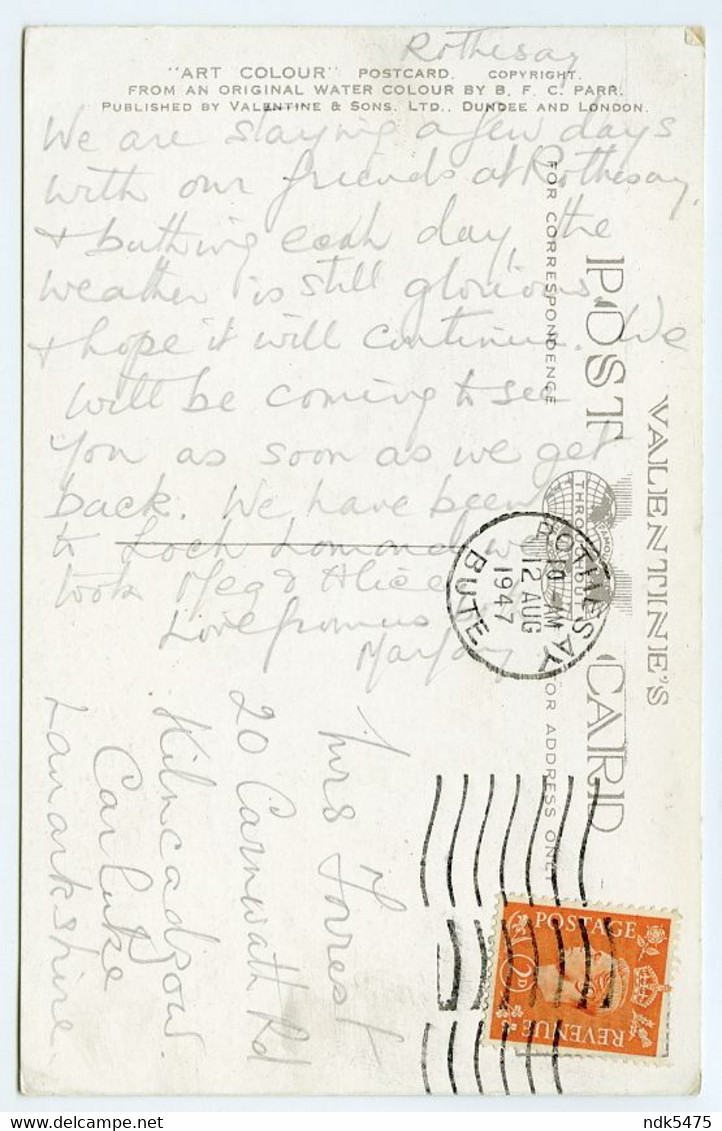 Rothesay
"ART COLOUR" POSTCARD. COPYRIGHT.
FROM AN ORIGINAL WATER COLOUR BY B. F. C. PARR.
PUBLISHED BY VALENTINE & SONS. LTD., DUNDEE AND LONDON.
We are staying a few days
with our friends at Rothesay,
& bathing each day, the
weather is still glorious
& hope it will continue. We
will be coming to see
you as soon as we get
back. We have been
to Loch Lomond we
took Meg & Alice
Love from us
Marjory
VALENTINE'S
POST CARD
FOR CORRESPONDENCE
FOR ADDRESS ONLY
ROTHESAY
10 AM
12 AUG
1947
BUTE
Mrs Forrest
20 Carnwath Rd
Kilncadzow
Carluke
Lanarkshire.
POSTAGE
2D
REVENUE
ndk5475